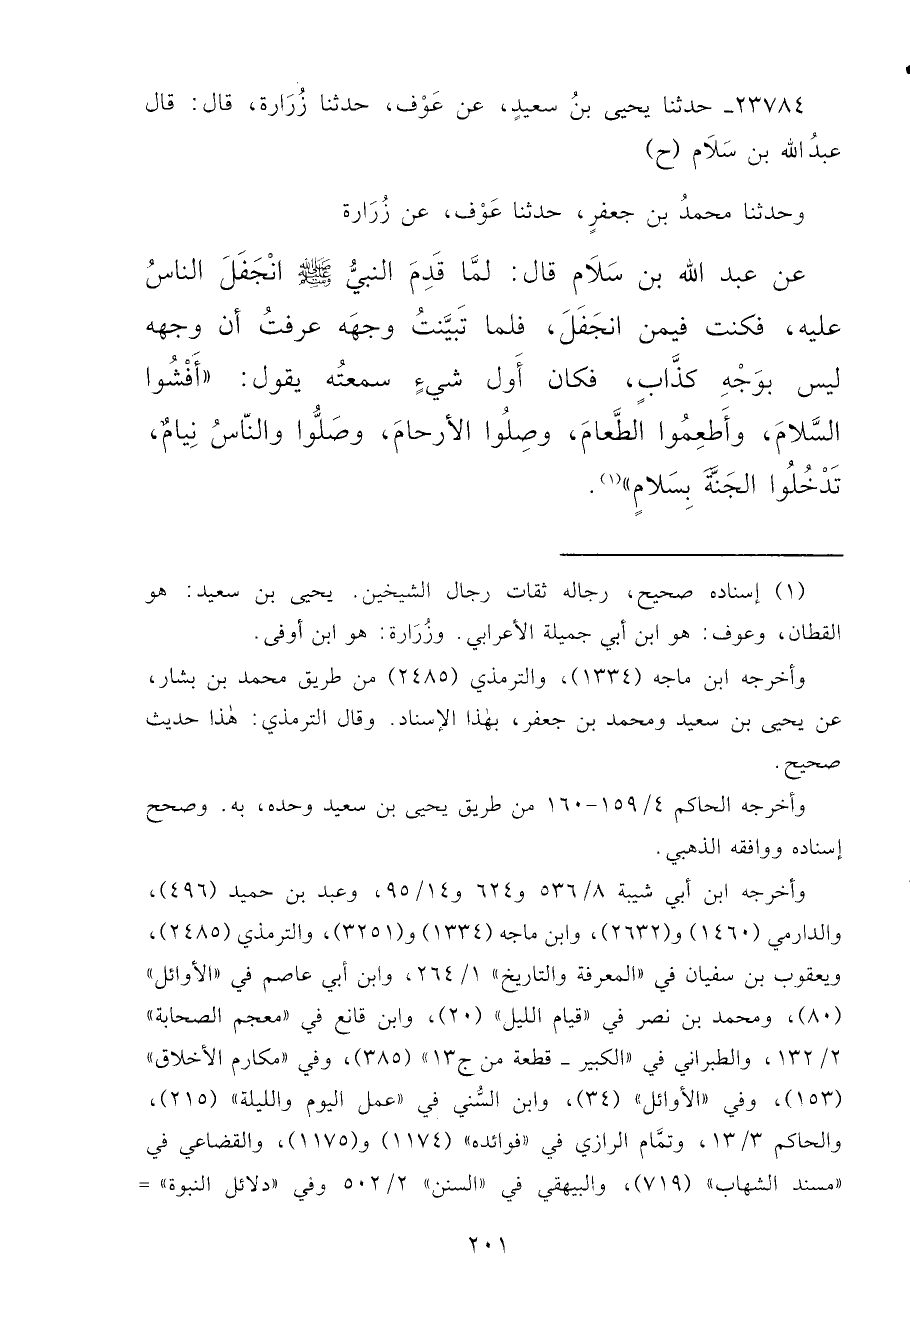 ٢٣٧٨٤ـ حدثنا يحيى بنُ سعيدٍ، عن عَوْف، حدثنا زُرَارة، قال: قال
عبدُ الله بن سَلَام (ح)
وحدثنا محمدُ بن جعفرٍ، حدثنا عَوْف، عن زُرَارة
عن عبد الله بن سَلَام قال: لمَّا قَدِمَ النبيُّ ﷺ انْجَفَلَ الناسُ
عليه، فكنت فيمن انجَفَلَ، فلما تَبيَّنتُ وجهَه عرفتُ أن وجهه
ليس بوَجْهِ كذَّابٍ، فكان أَول شيءٍ سمعتُه يقول: «أَفْشُوا
السَّلامَ، وأَطعِمُوا الطَّعامَ، وصِلُوا الأرحامَ، وصَلُّوا والنّاسُ نِيامٌ،
تَدْخُلُوا الجَنَّةَ بِسَلامٍ»(١).
(١) إسناده صحيح، رجاله ثقات رجال الشيخين. يحيى بن سعيد: هو
القطان، وعوف: هو ابن أبي جميلة الأعرابي. وزُرَارة: هو ابن أوفى.
وأخرجه ابن ماجه (١٣٣٤)، والترمذي (٢٤٨٥) من طريق محمد بن بشار،
عن يحيى بن سعيد ومحمد بن جعفر، بهٰذا الإسناد. وقال الترمذي: هٰذا حديث
صحيح.
وأخرجه الحاكم ٤/ ١٥٩-١٦٠ من طريق يحيى بن سعيد وحده، به. وصحح
إسناده ووافقه الذهبي.
وأخرجه ابن أبي شيبة ٨/ ٥٣٦ و٦٢٤ و١٤/ ٩٥، وعبد بن حميد (٤٩٦)،
والدارمي (١٤٦٠) و(٢٦٣٢)، وابن ماجه (١٣٣٤) و(٣٢٥١)، والترمذي (٢٤٨٥)،
ويعقوب بن سفيان في «المعرفة والتاريخ» ١/ ٢٦٤، وابن أبي عاصم في «الأوائل»
(٨٠)، ومحمد بن نصر في «قيام الليل» (٢٠)، وابن قانع في «معجم الصحابة»
٢/ ١٣٢، والطبراني في «الكبير ـ قطعة من ج١٣» (٣٨٥)، وفي «مكارم الأخلاق»
(١٥٣)، وفي «الأوائل» (٣٤)، وابن السُّني في «عمل اليوم والليلة» (٢١٥)،
والحاكم ٣/ ١٣، وتمَّام الرازي في «فوائده» (١١٧٤) و(١١٧٥)، والقضاعي في
«مسند الشهاب» (٧١٩)، والبيهقي في «السنن» ٢/ ٥٠٢ وفي «دلائل النبوة» =
٢٠١